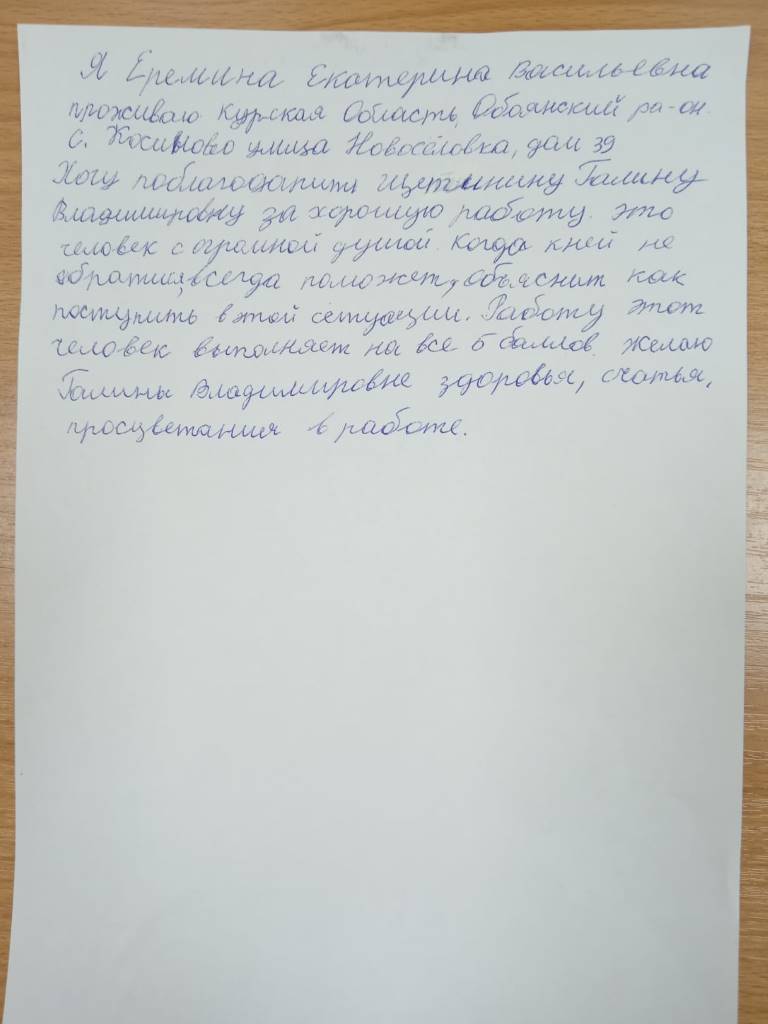 Я Еремина Екатерина Васильевна
проживаю Курская Область, Обаянский ра-он.
С. Косиново улица Новосёловка, дом 39
Хочу поблагодапить Щетинину Галину
Владимировну за хорошую работу. это
человек с огромной душой. Когда кней не
обратишя, всегда поможет, объяснит как
поступить в этой сетуации. Работу этот
человек выполняет на все 5 баллов. желаю
Галины Владимировне здоровья, счатья,
просцветания в работе.